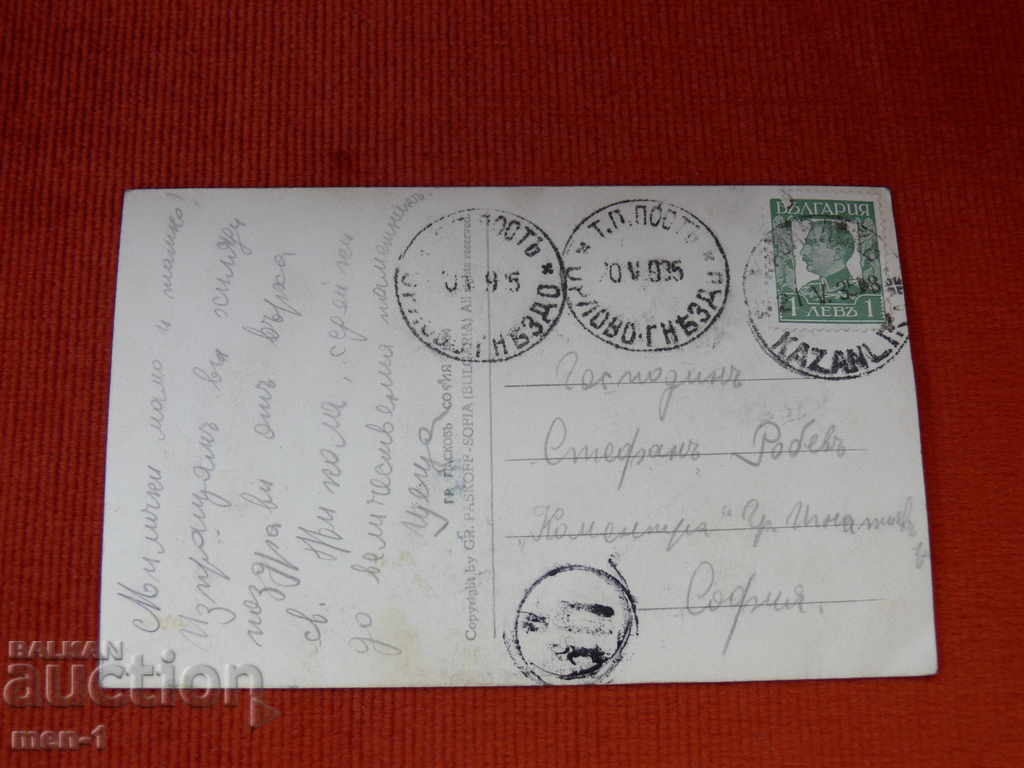 Милички мамо и татко!
Изпращамъ ви хиляди
поздрави отъ върха
св. Никола, седейки
до величествения паметникъ.
ГР. ПАСКОВЪ СОФИЯ
Copyright by GR. PASKOFF-SOFIA (BULGARIA) All rights reserved
ПОСТЪ
ГНѢЗДО
* Т.П.ПОСТЪ *
20 V 935
ОРЛОВО-ГНѢЗДО
БЪЛГАРИЯ
1 ЛЕВЪ 1
KAZANLIK
Господинъ
Стефанъ Робевъ
"Коментра" Гр. Игнатиевъ
София.
BALKAN
auction
men-1